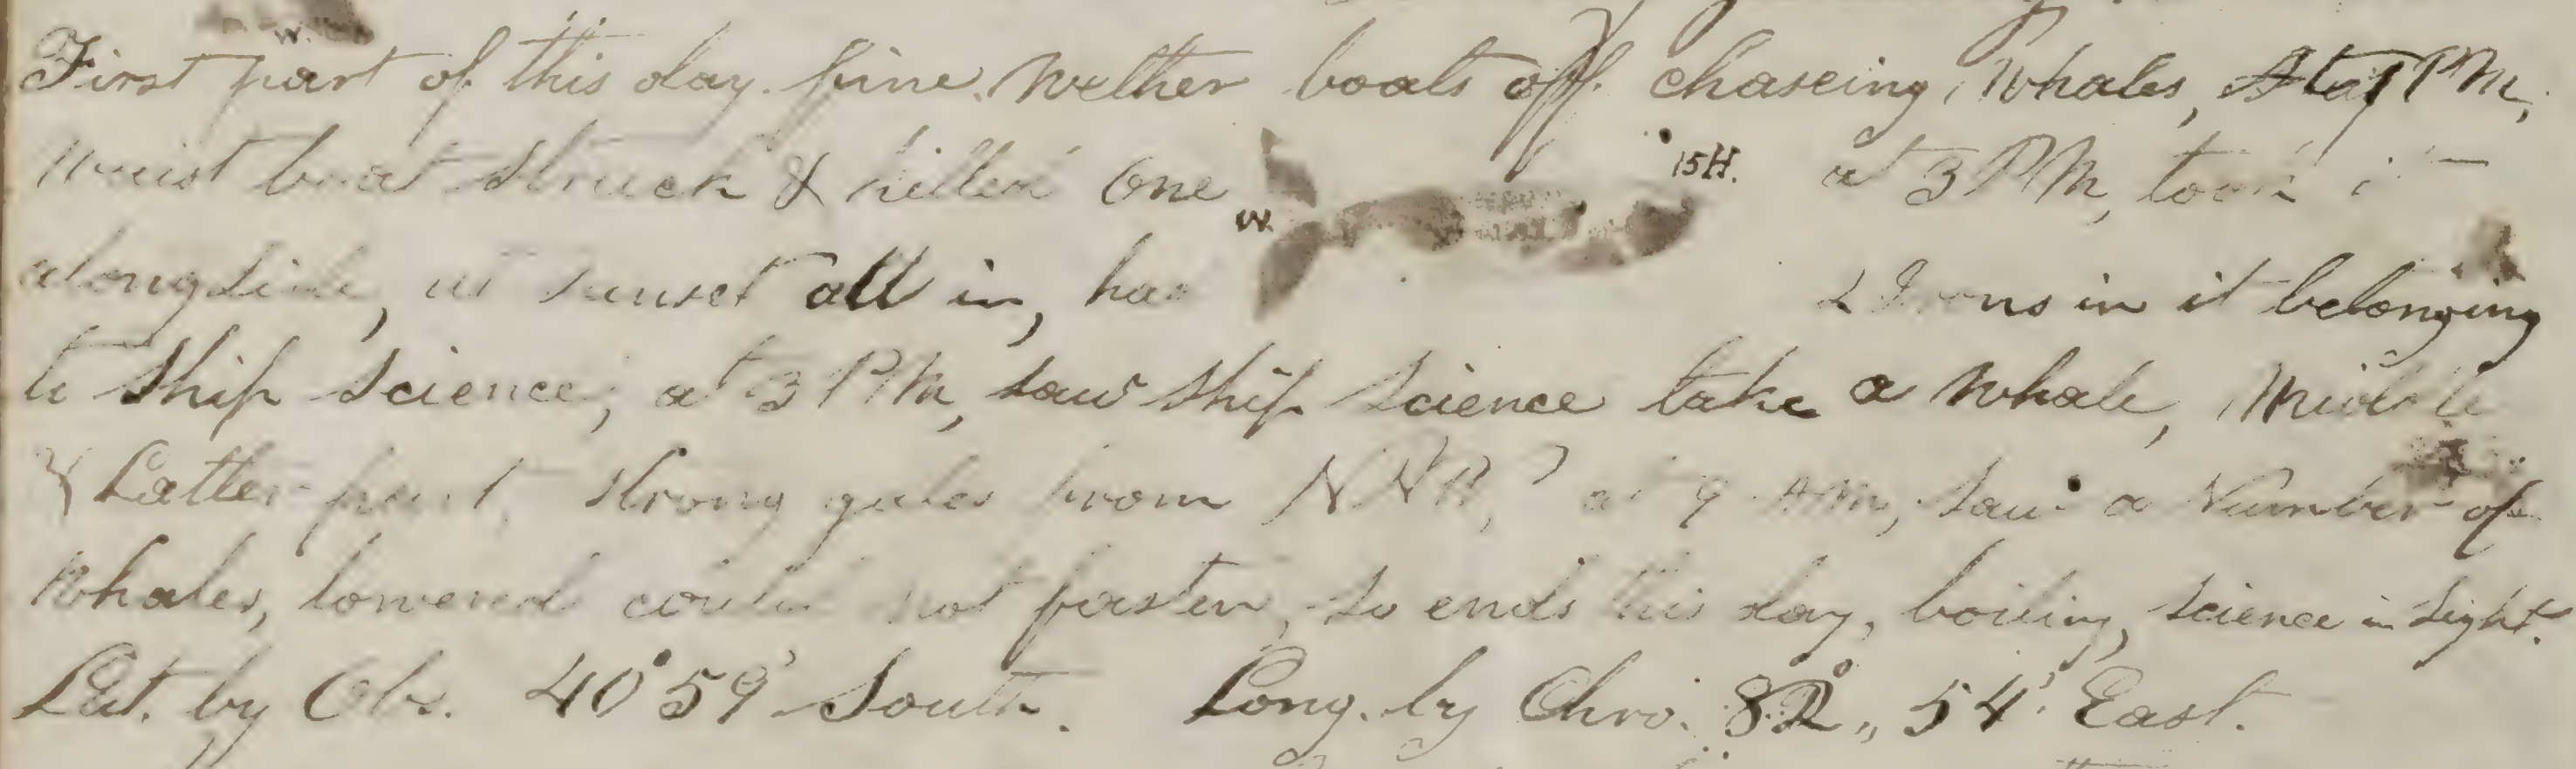 First part of this day. fine. wether boats off. chaseing, whales, At 1 PM,
Waist boat Struck & killed One W. 15H. at 3 PM, took it
alongside, at sunset all in, had 2 Irons in it belonging
to Ship Science, at 3 PM, saw Ship Science take a whale, Middle
& Latter part, strong gales from at 9 AM, saw a Number of
whales, lowered could not fasten, so ends this day, boiling, Science in Sight.
Lat. by Obs. 40°59' South. Long. by Chro. 82°,, 54' East.